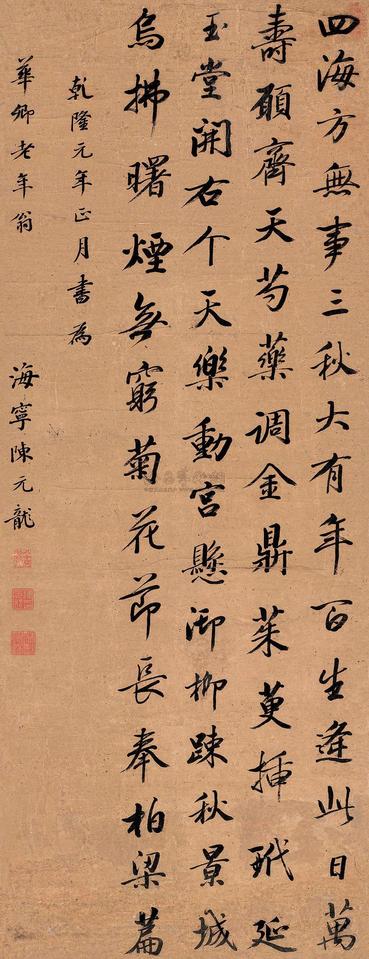 四海方無事三秋大有年百生逢此日萬
壽願齊天芍藥調金鼎茱萸插玳延
玉堂開右个天樂動宮懸御柳踈秋景城
烏拂曙煙無窮菊花節長奉柏梁篇
乾隆元年正月書為
華卿老年翁
海寧陳元龍